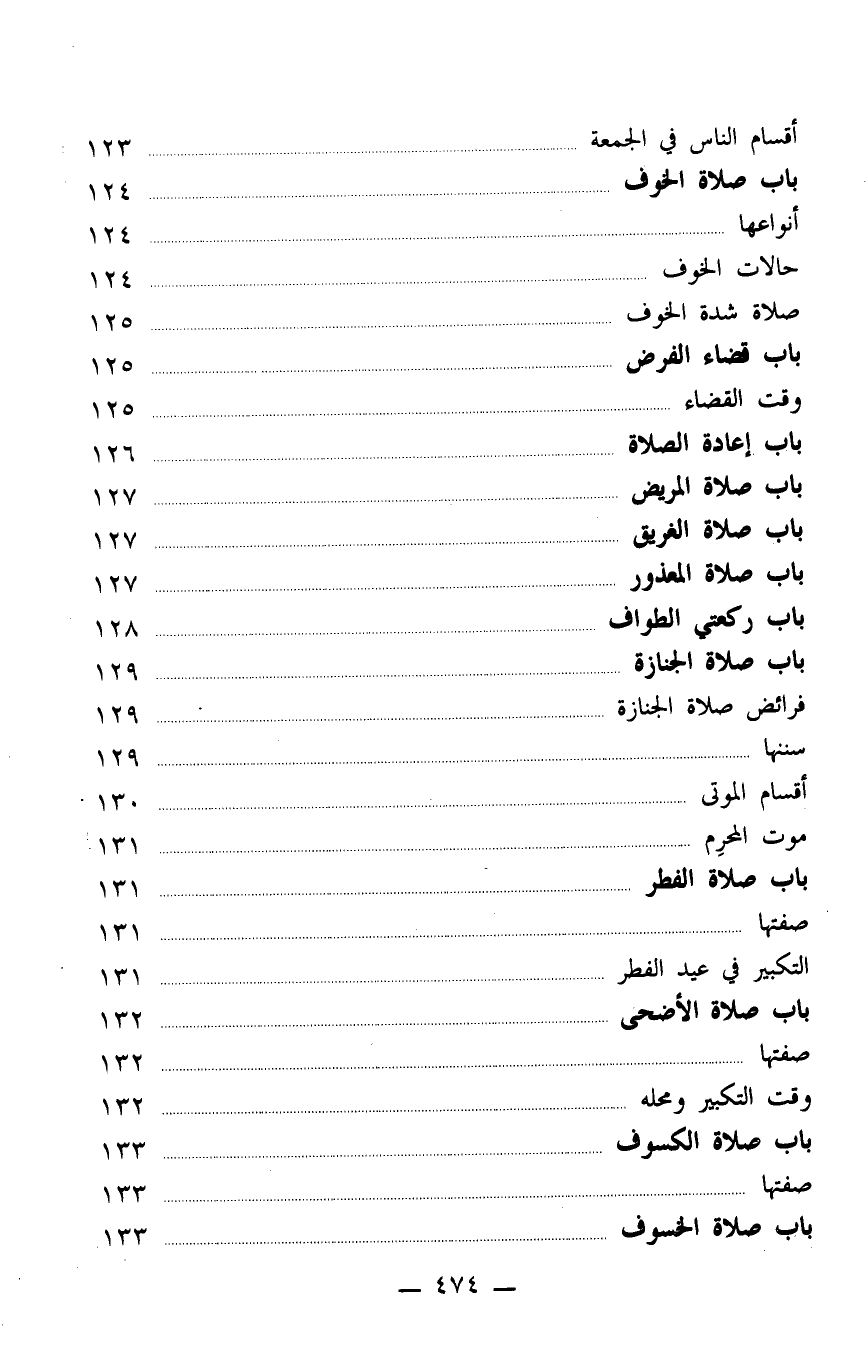 أقسام الناس في الجمعة ........ ١٢٣
باب صلاة الخوف ........ ١٢٤
أنواعها ........ ١٢٤
حالات الخوف ........ ١٢٤
صلاة شدة الخوف ........ ١٢٥
باب قضاء الفرض ........ ١٢٥
وقت القضاء ........ ١٢٥
باب إعادة الصلاة ........ ١٢٦
باب صلاة المريض ........ ١٢٧
باب صلاة الغريق ........ ١٢٧
باب صلاة المعذور ........ ١٢٧
باب ركعتي الطواف ........ ١٢٨
باب صلاة الجنازة ........ ١٢٩
فرائض صلاة الجنازة ........ ١٢٩
سننها ........ ١٢٩
أقسام الموتى ........ ١٣٠
موت المحرِم ........ ١٣١
باب صلاة الفطر ........ ١٣١
صفتها ........ ١٣١
التكبير في عيد الفطر ........ ١٣١
باب صلاة الأضحى ........ ١٣٢
صفتها ........ ١٣٢
وقت التكبير ومحله ........ ١٣٢
باب صلاة الكسوف ........ ١٣٣
صفتها ........ ١٣٣
باب صلاة الخسوف ........ ١٣٣
— ٤٧٤ —